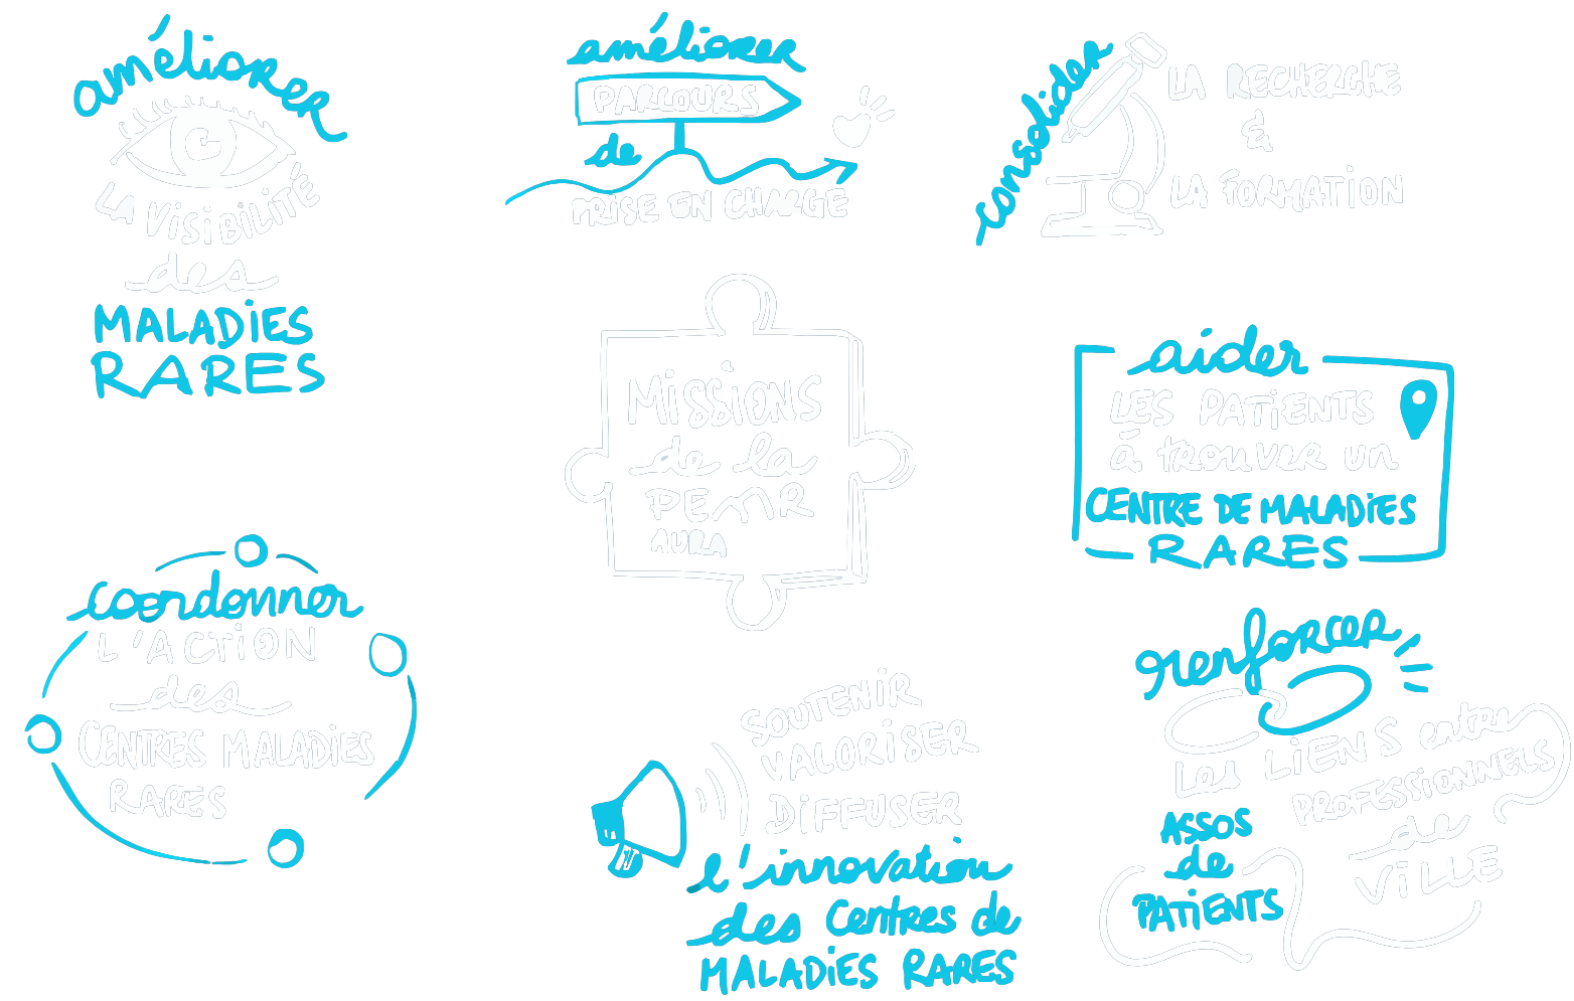 améliorer
LA VISIBILITÉ
des
MALADIES
RARES
améliorer
PARCOURS
de
PRISE EN CHARGE
consolider
LA RECHERCHE
&
LA FORMATION
MISSIONS
de la
PEMR
AURA
aider
LES PATIENTS
à trouver un
CENTRE DE MALADIES
RARES
coordonner
L'ACTION
des
CENTRES MALADIES
RARES
SOUTENIR
VALORISER
DIFFUSER
l'innovation
des Centres de
MALADIES RARES
renforcer
Les LIENS entre
PROFESSIONNELS
de
VILLE
ASSOS
de
PATIENTS